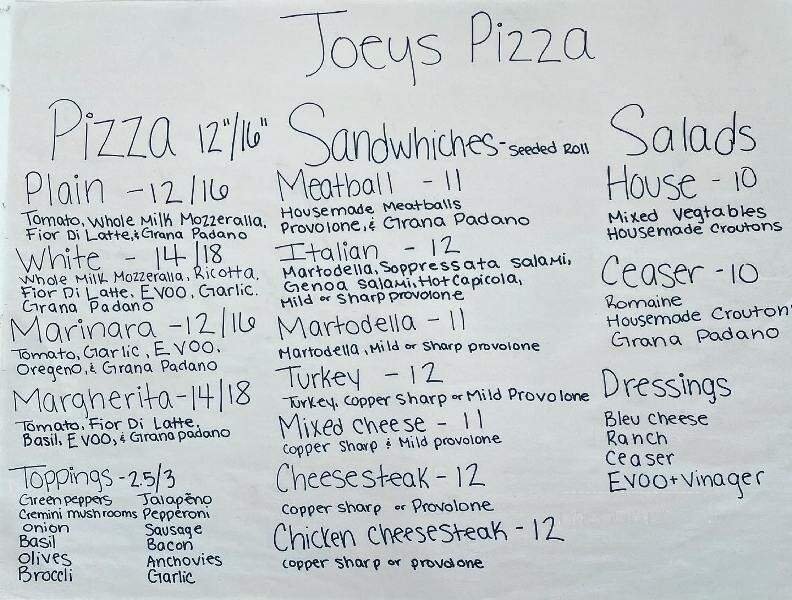 Joeys Pizza
Pizza 12"/16"
Plain - 12/16
Tomato, Whole Milk Mozzeralla,
Fior Di Latte, & Grana Padano
White - 14/18
Whole Milk Mozzeralla, Ricotta,
Fior Di Latte, EVOO, Garlic.
Grana Padano
Marinara - 12/16
Tomato, Garlic, EVOO,
Oregeno, & Grana Padano
Margherita - 14/18
Tomato, Fior Di Latte,
Basil, EVOO, & Grana padano
Toppings - 2.5/3
Green peppers Jalapeño
Cremini mushrooms Pepperoni
onion Sausage
Basil Bacon
Olives Anchovies
Broccli Garlic
Sandwhiches - Seeded Roll
Meatball - 11
Housemade Meatballs
Provolone, & Grana Padano
Italian - 12
Martodella, Soppressata salami,
Genoa salami, Hot Capicola,
Mild or sharp provolone
Martodella - 11
Martodella, Mild or sharp provolone
Turkey - 12
Turkey, copper sharp or Mild Provolone
Mixed cheese - 11
copper sharp & Mild provolone
Cheesesteak - 12
copper sharp or Provolone
Chicken cheesesteak - 12
copper sharp or provolone
Salads
House - 10
Mixed vegtables
Housemade croutons
Ceaser - 10
Romaine
Housemade Crouton
Grana Padano
Dressings
Bleu cheese
Ranch
Ceaser
EVOO + Vinager